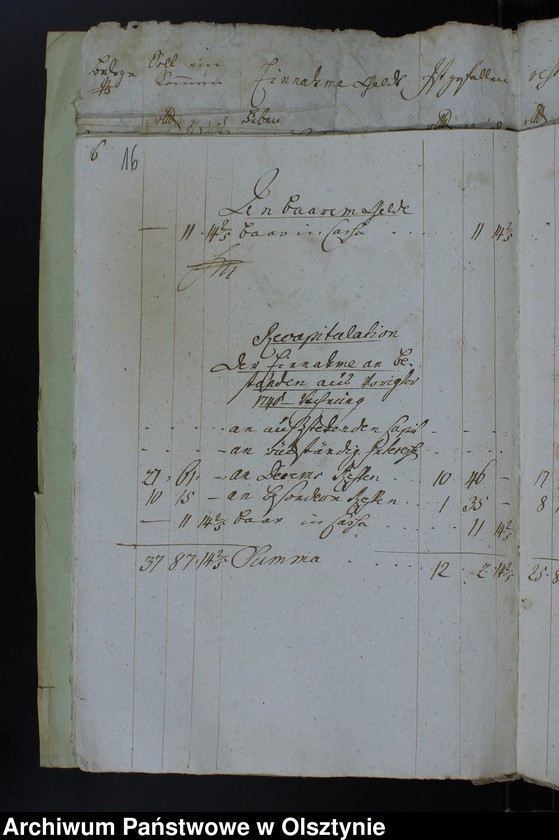 Soll ein
kommen
Einnahme Geldt
Ist gefallen
6 16
An baarem Gelde
— 11 . 14 2/5 baar in Cassa . . . . 11 14 2/5
Recapitulation
Der Einnahme an Be-
ständen aus voriger
Rechnung
- - - - an ausstehenden Capit - - -
- - - - an rückständig. - - -
27 . 61 . - an Decems Resten . . 10 46 - 17
10 15 - an besondern Resten . . . 1 35 - 8
— 11 14 2/5 baar in Cassa . . . . . 11 14 2/5
37 87 . 14 2/5 Summa . . . . . 12 . 2 . 14 2/5 25
Archiwum Państwowe w Olsztynie